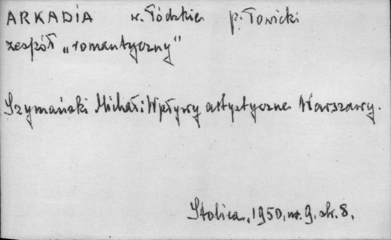 ARKADIA w. łódzkie p. Łowicki
zespół „romantyczny"
Szymański Michał: Wpływy artystyczne Warszawy.
Stolica, 1950, nr. 9. str. 8.